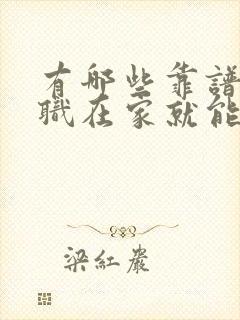 有哪些靠譜
職在家就能
梁紅巖